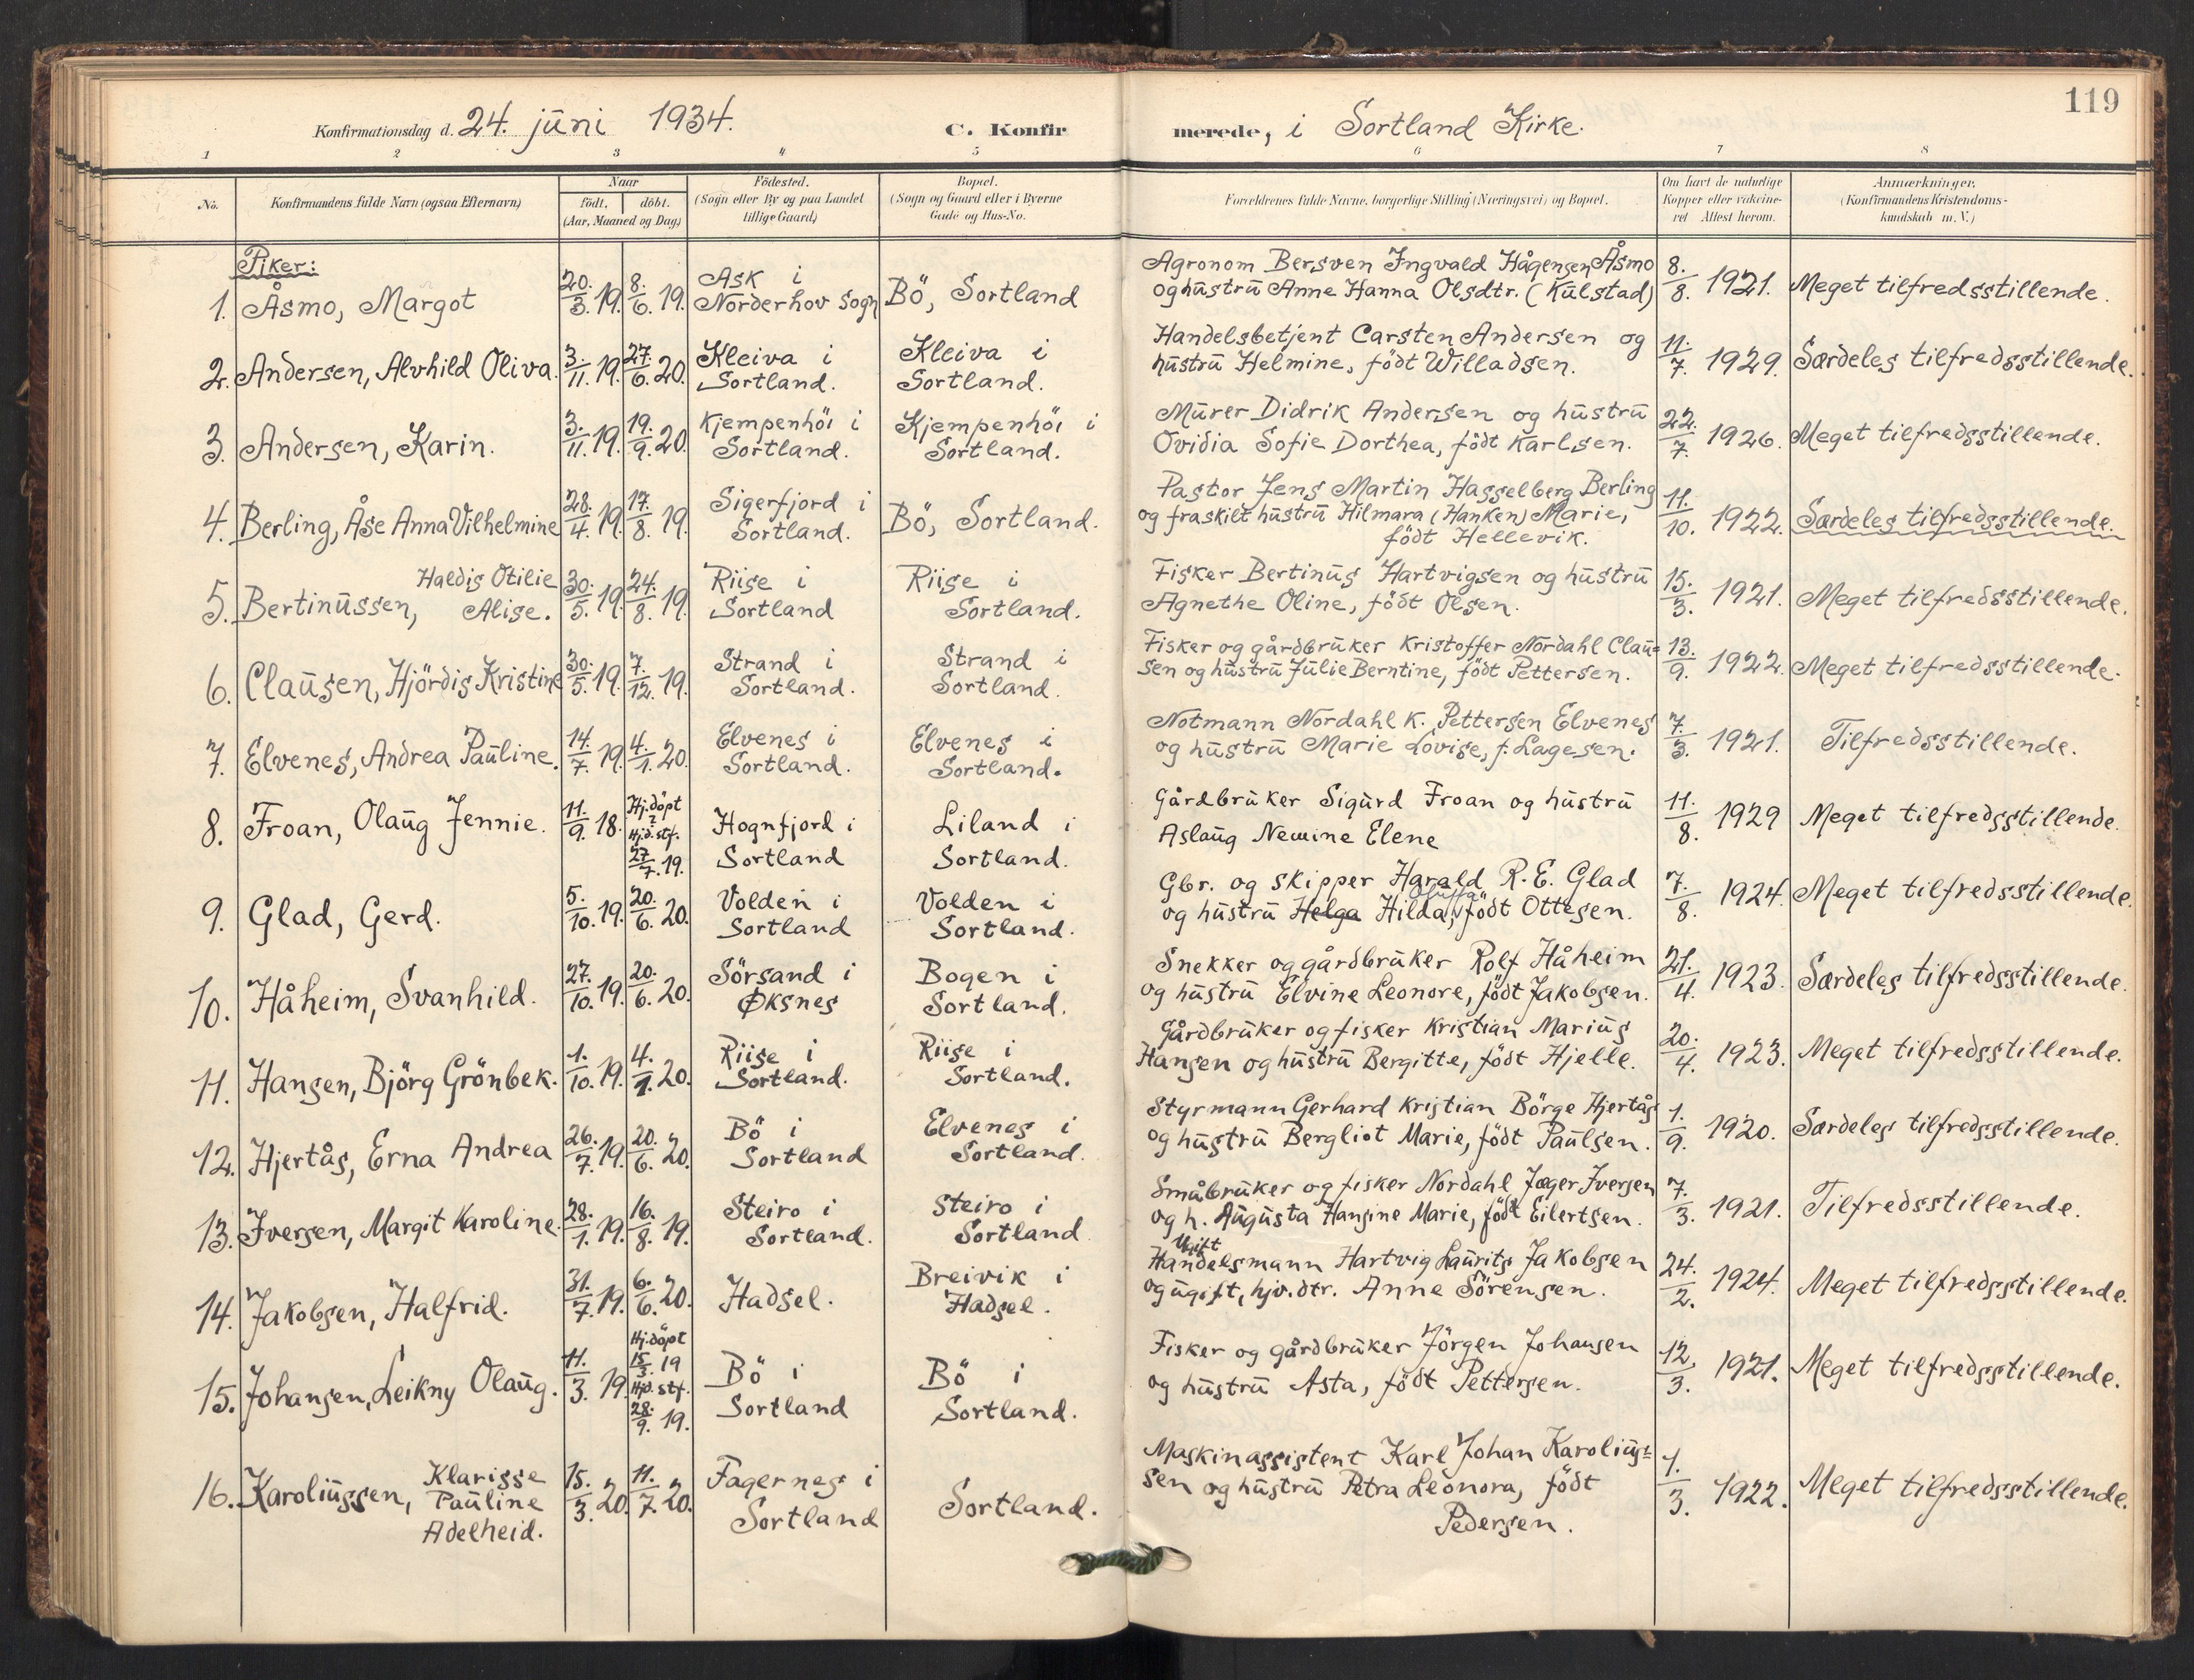 119
Konfirmationsdag d. 24. juni 1934. C. Konfirmerede, i Sortland Kirke.
1 2 3 4 5 6 7 8
No. | Konfirmandens fulde Navn (ogsaa Efternavn) | Naar født, døbt. (Aar, Maaned og Dag) | Födested. (Sogn eller By og paa Landet tillige Gaard) | Bopæl. (Sogn og Gaard eller i Byerne Gade og Hus-No. | Forældrenes fulde Navne, borgerlige Stilling (Næringsvei) og Bopæl. | Om havt de naturlige Kopper eller vakcineret Attest herom. | Anmærkninger. (Konfirmandens Kristendomskundskab m. V.)
Piker:
1. Åsmo, Margot | 20./3. 19. | 8./6. 19. | Ask i Norderhov sogn | Bö, Sortland | Agronom Bersven Ingvald Hågensen Åsmo og hustru Anne Hanna Olsdtr. (Kulstad) | 8./8. 1921. | Meget tilfredsstillende.
2. Andersen, Alvhild Oliva. | 3./11. 19. | 27./6. 20. | Kleiva i Sortland. | Kleiva i Sortland. | Handelsbetjent Carsten Andersen og hustru Helmine, födt Willadsen. | 11./7. 1929. | Særdeles tilfredsstillende.
3. Andersen, Karin. | 3./11. 19. | 19./9. 20. | Kjempenhöi i Sortland. | Kjempenhöi i Sortland. | Murer Didrik Andersen og hustru Ovidia Sofie Dorthea, födt Karlsen. | 22./7. 1926. | Meget tilfredsstillende.
4. Berling, Åse Anna Vilhelmine | 28./4. 19. | 17./8. 19. | Sigerfjord i Sortland. | Bö, Sortland. | Pastor Jens Martin Hasselberg Berling og fraskilt hustru Hilmara (Hanken) Marie, födt Hellevik. | 11./10. 1922. | Særdeles tilfredsstillende.
5. Bertinussen, Haldis Otilie Alise. | 30./5. 19. | 24./8. 19. | Riise i Sortland | Riise i Sortland. | Fisker Bertinus Hartvigsen og hustru Agnethe Oline, födt Olsen. | 15./3. 1921. | Meget tilfredsstillende.
6. Clausen, Hjördis Kristine | 30./5. 19. | 7./12. 19. | Strand i Sortland. | Strand i Sortland. | Fisker og gårdbruker Kristoffer Nordahl Clausen og hustru Julie Berntine, födt Pettersen. | 13./9. 1922. | Meget tilfredsstillende.
7. Elvenes, Andrea Pauline. | 14./7. 19. | 4./1. 20. | Elvenes i Sortland. | Elvenes i Sortland. | Notmann Nordahl K. Pettersen Elvenes og hustru Marie Lovise, f. Lagesen. | 7./3. 1921. | Tilfredsstillende.
8. Froan, Olaug Jennie. | 11./9. 18. | Hj.döpt ? Hjd. stf. 27/7. 19. | Hognfjord i Sortland | Liland i Sortland. | Gårdbruker Sigurd Froan og hustru Aslaug Nemine Elene | 11./8. 1929 | Meget tilfredsstillende.
9. Glad, Gerd. | 5./10. 19. | 20./6. 20. | Volden i Sortland | Volden i Sortland. | Gbr. og skipper Harald R. E. Glad og hustru Helga Hilda, födt Ottesen. | 7./8. 1924. | Meget tilfredsstillende.
10. Håheim, Svanhild. | 27./10. 19. | 20./6. 20. | Sörsand i Øksnes | Bogen i Sortland. | Snekker og gårdbruker Rolf Håheim og hustru Elvine Leonore, födt Jakobsen. | 21./4. 1923. | Særdeles tilfredsstillende.
11. Hansen, Björg Grönbek. | 1./10. 19. | 4./1. 20. | Riise i Sortland. | Riise i Sortland. | Gårdbruker og fisker Kristian Marius Hansen og hustru Bergitte, födt Hjelle. | 20./4. 1923. | Meget tilfredsstillende.
12. Hjertås, Erna Andrea | 26./7. 19. | 20./6. 20. | Bö i Sortland | Elvenes i Sortland. | Styrmann Gerhard Kristian Börge Hjertås og hustru Bergliot Marie, födt Paulsen. | 1./9. 1920. | Særdeles tilfredsstillende.
13. Iversen, Margit Karoline. | 28./1. 19. | 16./8. 19. | Steiro i Sortland. | Steiro i Sortland | Småbruker og fisker Nordahl Jæger Iversen og h. Augusta Hansine Marie, födt Eilertsen. | 7./3. 1921. | Tilfredsstillende.
14. Jakobsen, Halfrid. | 31./7. 19. | 6./6. 20. | Hadsel. | Breivik i Hadsel. | Ugift Handelsmann Hartvig Laurits Jakobsen og ugift, hjv. dtr. Anne Sörensen. | 24./2. 1924. | Meget tilfredsstillende.
15. Johansen, Leikny Olaug. | 11./3. 19. | Hj.döpt 15/3. 19 Hjd. stf. 28./9. 19. | Bö i Sortland | Bö i Sortland. | Fisker og gårdbruker Jörgen Johansen og hustru Asta, födt Pettersen. | 12./3. 1921. | Meget tilfredsstillende.
16. Karoliussen, Klarisse Pauline Adelheid. | 15./3. 20. | 11./7. 20. | Fagernes i Sortland | Sortland. | Maskinassistent Karl Johan Karoliussen og hustru Petra Leonora, födt Pedersen. | 1./3. 1922. | Meget tilfredsstillende.